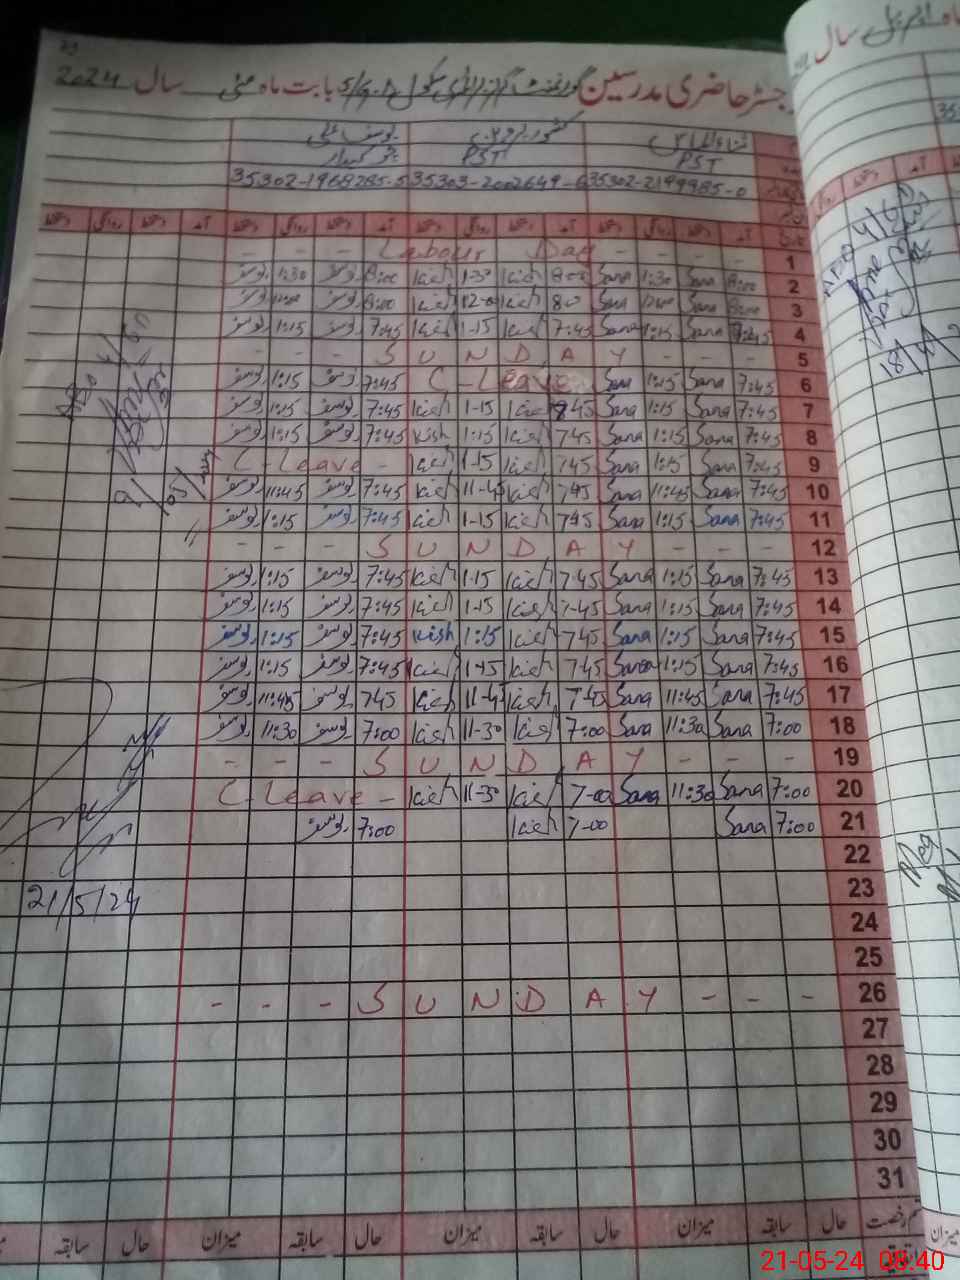 رجسٹر حاضری مدرسین گورنمنٹ گرلز پرائمری سکول بابت ماہ مئی سال 2024
ماہ اپریل سال
کشور پروین یوسف علی
PST PST چوکیدار
35302-2199985-0 35303-2002649-6 35302-1968285-5
تاریخ آمد دستخط روانگی دستخط آمد دستخط روانگی دستخط آمد دستخط روانگی دستخط آمد دستخط روانگی دستخط
1 - - - Labour Day - - - -
2 8:00 Sana 1:30 Sana 8:00 Kish 1-30 Kish 8:00 یوسف 1:30 یوسف
3 8:00 Sana Sana 80 Kish 12-0 Kish 8:00 یوسف یوسف
4 7:45 Sana 1:15 Sana 7:45 Kish 1-15 Kish 7:45 یوسف 1:15 یوسف
5 - - - S U N D A Y - - -
6 7:45 Sana 1:15 Sana C-Leave 7:45 یوسف 1:15 یوسف
7 7:45 Sana 1:15 Sana 745 Kish 1-15 Kish 7:45 یوسف 1:15 یوسف
8 7:45 Sana 1:15 Sana 745 Kish 1:15 Kish 7:45 یوسف 1:15 یوسف
9 7:45 Sana 1:15 Sana 745 Kish 1-15 Kish C-Leave -
10 7:45 Sana 11:45 Sana 745 Kish 11-45 Kish 7:45 یوسف 11:45 یوسف
11 7:45 Sana 1:15 Sana 745 Kish 1-15 Kish 7:45 یوسف 1:15 یوسف
12 - - - S U N D A Y - - -
13 7:45 Sana 1:15 Sana 7-45 Kish 1-15 Kish 7:45 یوسف 1:15 یوسف
14 7:45 Sana 1:15 Sana 7-45 Kish 1-15 Kish 7:45 یوسف 1:15 یوسف
15 7:45 Sana 1:15 Sana 745 Kish 1:15 Kish 7:45 یوسف 1:15 یوسف
16 7:45 Sana 1:15 Sana 7-45 Kish 1-15 Kish 7:45 یوسف 1:15 یوسف
17 7:45 Sana 11:45 Sana 7-45 Kish 11-45 Kish 745 یوسف 11:45 یوسف
18 7:00 Sana 11:30 Sana 7:00 Kish 11-30 Kish 7:00 یوسف 11:30 یوسف
19 - - - S U N D A Y - - -
20 7:00 Sana 11:30 Sana 7-00 Kish 11-30 Kish C-Leave -
21 7:00 Sana 7-00 Kish 7:00 یوسف
22
23
21/5/24
24
25
26 - - - S U N D A Y - - -
27
28
29
30
31
حال سابقہ میزان حال سابقہ میزان حال سابقہ میزان حال سابقہ
21-05-24 08:40